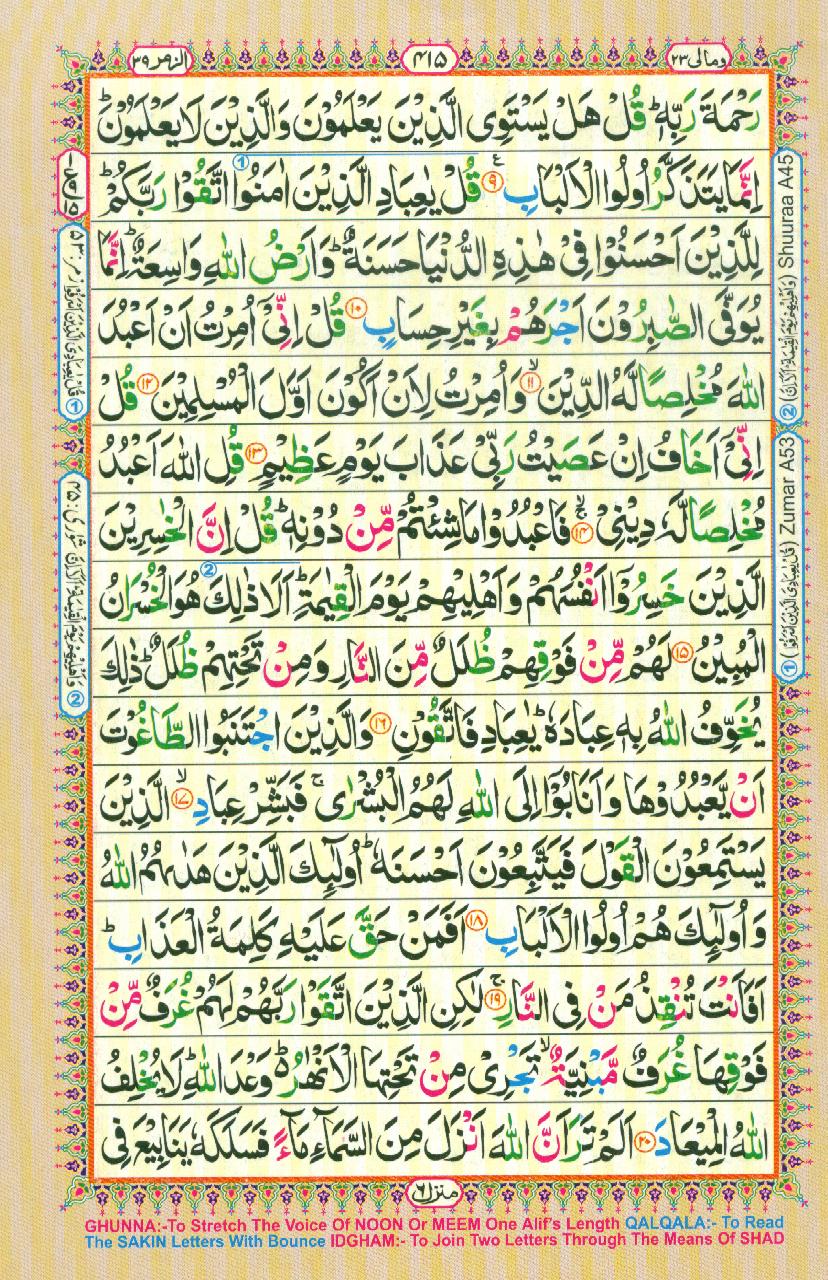 ومالی ۲۳
۴۱۵
الزمر ۳۹
رَحْمَةَ رَبِّهٖ ؕ قُلْ هَلْ يَسْتَوِى الَّذِيْنَ يَعْلَمُوْنَ وَالَّذِيْنَ لَا يَعْلَمُوْنَ ؕ
اِنَّمَا يَتَذَكَّرُ اُولُوا الْاَلْبَابِ ۹ قُلْ يٰعِبَادِ الَّذِيْنَ اٰمَنُوا اتَّقُوْا رَبَّكُمْ ؕ
لِلَّذِيْنَ اَحْسَنُوْا فِىْ هٰذِهِ الدُّنْيَا حَسَنَةٌ ؕ وَاَرْضُ اللّٰهِ وَاسِعَةٌ ؕ اِنَّمَا
يُوَفَّى الصّٰبِرُوْنَ اَجْرَهُمْ بِغَيْرِ حِسَابٍ ۱۰ قُلْ اِنِّىْۤ اُمِرْتُ اَنْ اَعْبُدَ
اللّٰهَ مُخْلِصًا لَّهُ الدِّيْنَ ۙ ۱۱ وَاُمِرْتُ لِاَنْ اَكُوْنَ اَوَّلَ الْمُسْلِمِيْنَ ۱۲ قُلْ
اِنِّىْۤ اَخَافُ اِنْ عَصَيْتُ رَبِّىْ عَذَابَ يَوْمٍ عَظِيْمٍ ۱۳ قُلِ اللّٰهَ اَعْبُدُ
مُخْلِصًا لَّهٗ دِيْنِىْ ۙ ۱۴ فَاعْبُدُوْا مَا شِئْتُمْ مِّنْ دُوْنِهٖ ؕ قُلْ اِنَّ الْخٰسِرِيْنَ
الَّذِيْنَ خَسِرُوْۤا اَنْفُسَهُمْ وَاَهْلِيْهِمْ يَوْمَ الْقِيٰمَةِ ؕ اَلَا ذٰلِكَ هُوَ الْخُسْرَانُ
الْمُبِيْنُ ۱۵ لَهُمْ مِّنْ فَوْقِهِمْ ظُلَلٌ مِّنَ النَّارِ وَمِنْ تَحْتِهِمْ ظُلَلٌ ؕ ذٰلِكَ
يُخَوِّفُ اللّٰهُ بِهٖ عِبَادَهٗ ؕ يٰعِبَادِ فَاتَّقُوْنِ ۱۶ وَالَّذِيْنَ اجْتَنَبُوا الطَّاغُوْتَ
اَنْ يَّعْبُدُوْهَا وَاَنَابُوْۤا اِلَى اللّٰهِ لَهُمُ الْبُشْرٰى ۚ فَبَشِّرْ عِبَادِ ۙ ۱۷ الَّذِيْنَ
يَسْتَمِعُوْنَ الْقَوْلَ فَيَتَّبِعُوْنَ اَحْسَنَهٗ ؕ اُولٰٓئِكَ الَّذِيْنَ هَدٰٮهُمُ اللّٰهُ
وَاُولٰٓئِكَ هُمْ اُولُوا الْاَلْبَابِ ۱۸ اَفَمَنْ حَقَّ عَلَيْهِ كَلِمَةُ الْعَذَابِ ؕ
اَفَاَنْتَ تُنْقِذُ مَنْ فِى النَّارِ ۚ ۱۹ لٰكِنِ الَّذِيْنَ اتَّقَوْا رَبَّهُمْ لَهُمْ غُرَفٌ مِّنْ
فَوْقِهَا غُرَفٌ مَّبْنِيَّةٌ ۙ تَجْرِىْ مِنْ تَحْتِهَا الْاَنْهٰرُ ؕ وَعْدَ اللّٰهِ ؕ لَا يُخْلِفُ
اللّٰهُ الْمِيْعَادَ ۲۰ اَلَمْ تَرَ اَنَّ اللّٰهَ اَنْزَلَ مِنَ السَّمَآءِ مَآءً فَسَلَكَهٗ يَنَابِيْعَ فِى
② Shuuraa A45
① Zumar A53
منزل ۶
GHUNNA:-To Stretch The Voice Of NOON Or MEEM One Alif's Length QALQALA:- To Read
The SAKIN Letters With Bounce IDGHAM:- To Join Two Letters Through The Means Of SHAD